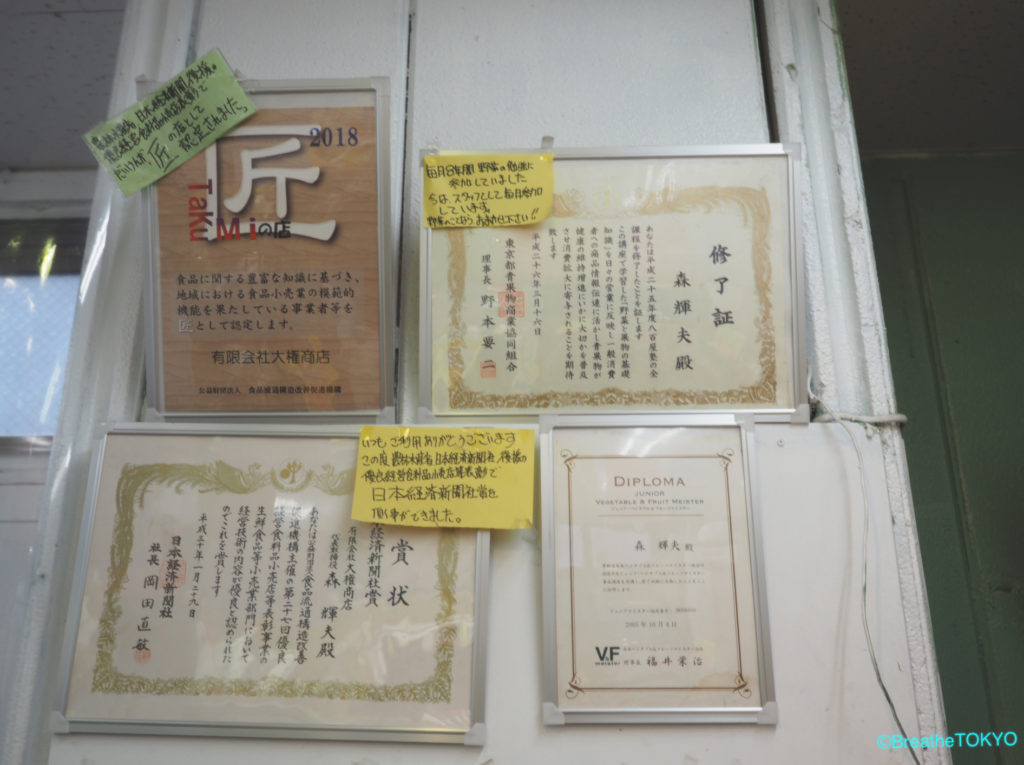 農林水産省、日本経済新聞 後援の
優良経営食料品小売店表彰で
匠の店として
認定されました。
匠
2018
TakuMiの店
食品に関する豊富な知識に基づき、
地域における食品小売業の模範的
機能を果たしている事業者等を
匠として認定します。
有限会社大権商店
公益財団法人 食品流通構造改善促進機構
毎月8年間 野菜の勉強に
参加していました
今は、スタッフとして毎月参加
しています。
野菜のことなら お まかせ下さい!!
修了証
森輝夫殿
あなたは平成二十五年度八百屋塾の全
課程を修了したことを証します
この講座で学習した「野菜と果物の基礎
知識」を日々の営業に反映し一般消費
者への商品情報伝達に活かし青果物が
健康の維持増進にいかに大切かを普及
させ消費拡大に寄与されることを期待
致します
平成二十六年三月十六日
東京都青果物商業協同組合
理事長 野本要二
いつも ご利用 ありがとうございます
この度 農林水産省 日本経済新聞社 後援の
優良経営食料品小売店等表彰で
日本経済新聞社賞を
頂く事ができました。
賞状
経済新聞社賞
有限会社大権商店
代表取締役 森 輝夫殿
あなたは公益財団法人食品流通構造改善
促進機構主催の第二十七回優良
経営食料品小売店等表彰事業の
生鮮食品等小売業部門において
経営技術の内容が優良と認められた
のでこれを賞します
平成三十年一月二十九日
日本経済新聞社
社長 岡田直敏
DIPLOMA
JUNIOR
VEGETABLE & FRUIT MEISTER
ジュニア・ベジタブル&フルーツマイスター
森 輝夫 殿
2005年10月4日
V&F
meister
理事長 福井栄治
©BreatheTOKYO